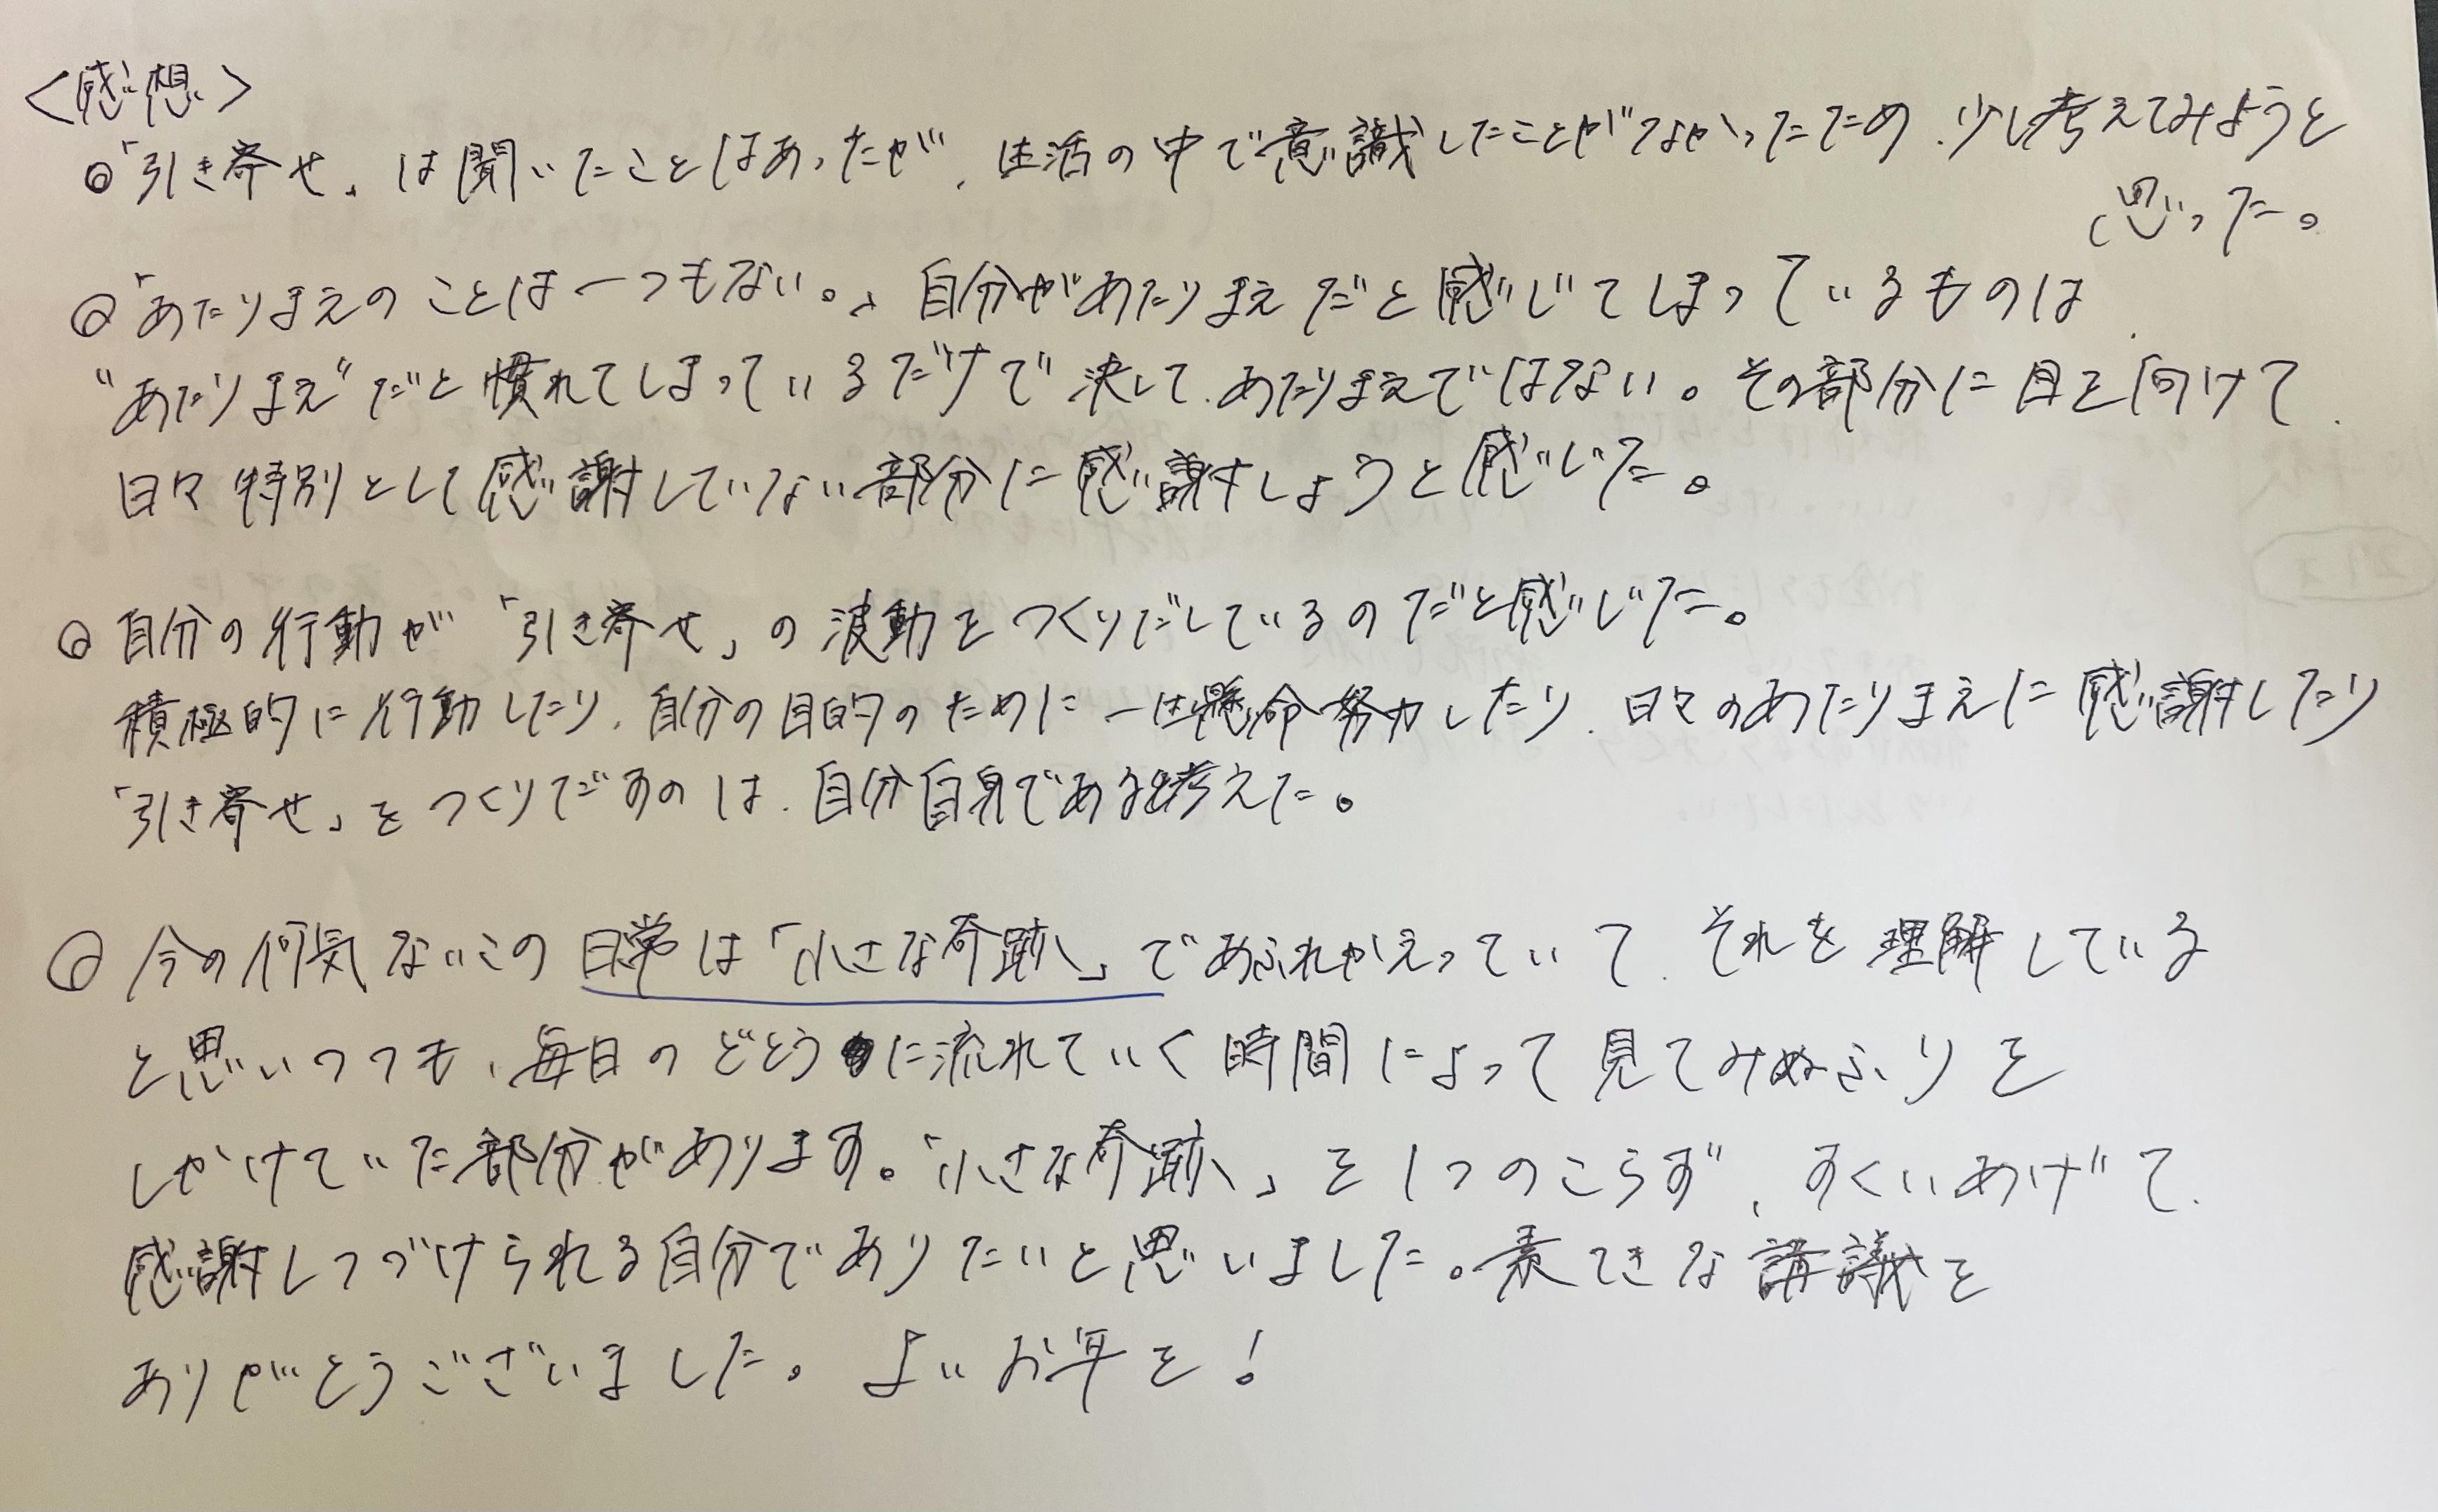 <感想>
◎「引き寄せ」は聞いたことはあったが、生活の中で意識したことがなかったため、少し考えてみようと
思った。
◎「あたりまえのことは一つもない。」自分があたりまえだと感じてしまっているものは、
"あたりまえ"だと慣れてしまっているだけで決して、あたりまえではない。その部分に目を向けて、
日々特別として感謝していない部分に感謝しようと感じた。
◎自分の行動が「引き寄せ」の波動をつくりだしているのだと感じた。
積極的に行動したり、自分の目的のために一生懸命努力したり、日々のあたりまえに感謝したり
「引き寄せ」をつくりだすのは、自分自身であると考えた。
◎今の何気ないこの日常は「小さな奇跡」であふれかえっていて、それを理解している
と思いつつも、毎日のどとうに流れていく時間によって見てみぬふりを
しかけていた部分があります。「小さな奇跡」を1つのこらず、すくいあげて、
感謝しつづけられる自分でありたいと思いました。素てきな講議を
ありがとうございました。よいお年を!